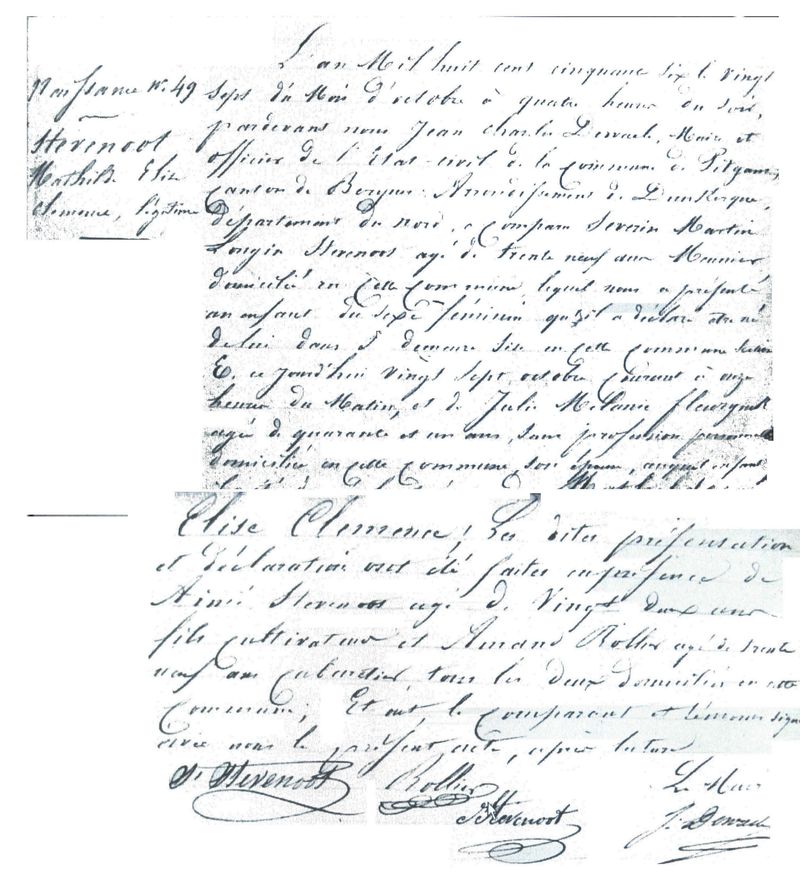 Naissance N. 49
Stevenoot
Mathilde Elise
Clemence, légitime
L'an Mil huit cent cinquante six le vingt
Sept du Mois d'octobre à quatre heures du soir,
pardevant nous Jean Charles Maire et
officier de l'Etat-civil de la commune de Pitgam,
canton de Bergues, Arrondissement de Dunkerque,
département du nord, a comparu Severin Martin
Longin Stevenoot agé de trente neuf ans Meunier,
domicilié en cette commune, lequel nous a présenté
un enfant du sexe féminin qu'il a déclaré être né
de lui dans sa demeure sise en cette commune section
E, ce jourd'hui vingt sept octobre courant à onze
heures du Matin, et de Julie Mélanie
agée de quarante et un ans, sans profession personnelle
domiciliée en cette commune, son épouse, auquel enfant
Elise Clemence; Les dites présentation
et déclaration ont été faites en présence de
Aimé Stevenoot agé de vingt deux ans
fils cultivateur et Amand Rollier agé de trente
neuf ans cabaretier tous les deux domiciliés en cette
Commune; Et ont le comparant et témoins signé
avec nous le présent acte, après lecture
St Stevenoot Rollier Le Maire
Stevenoot J.